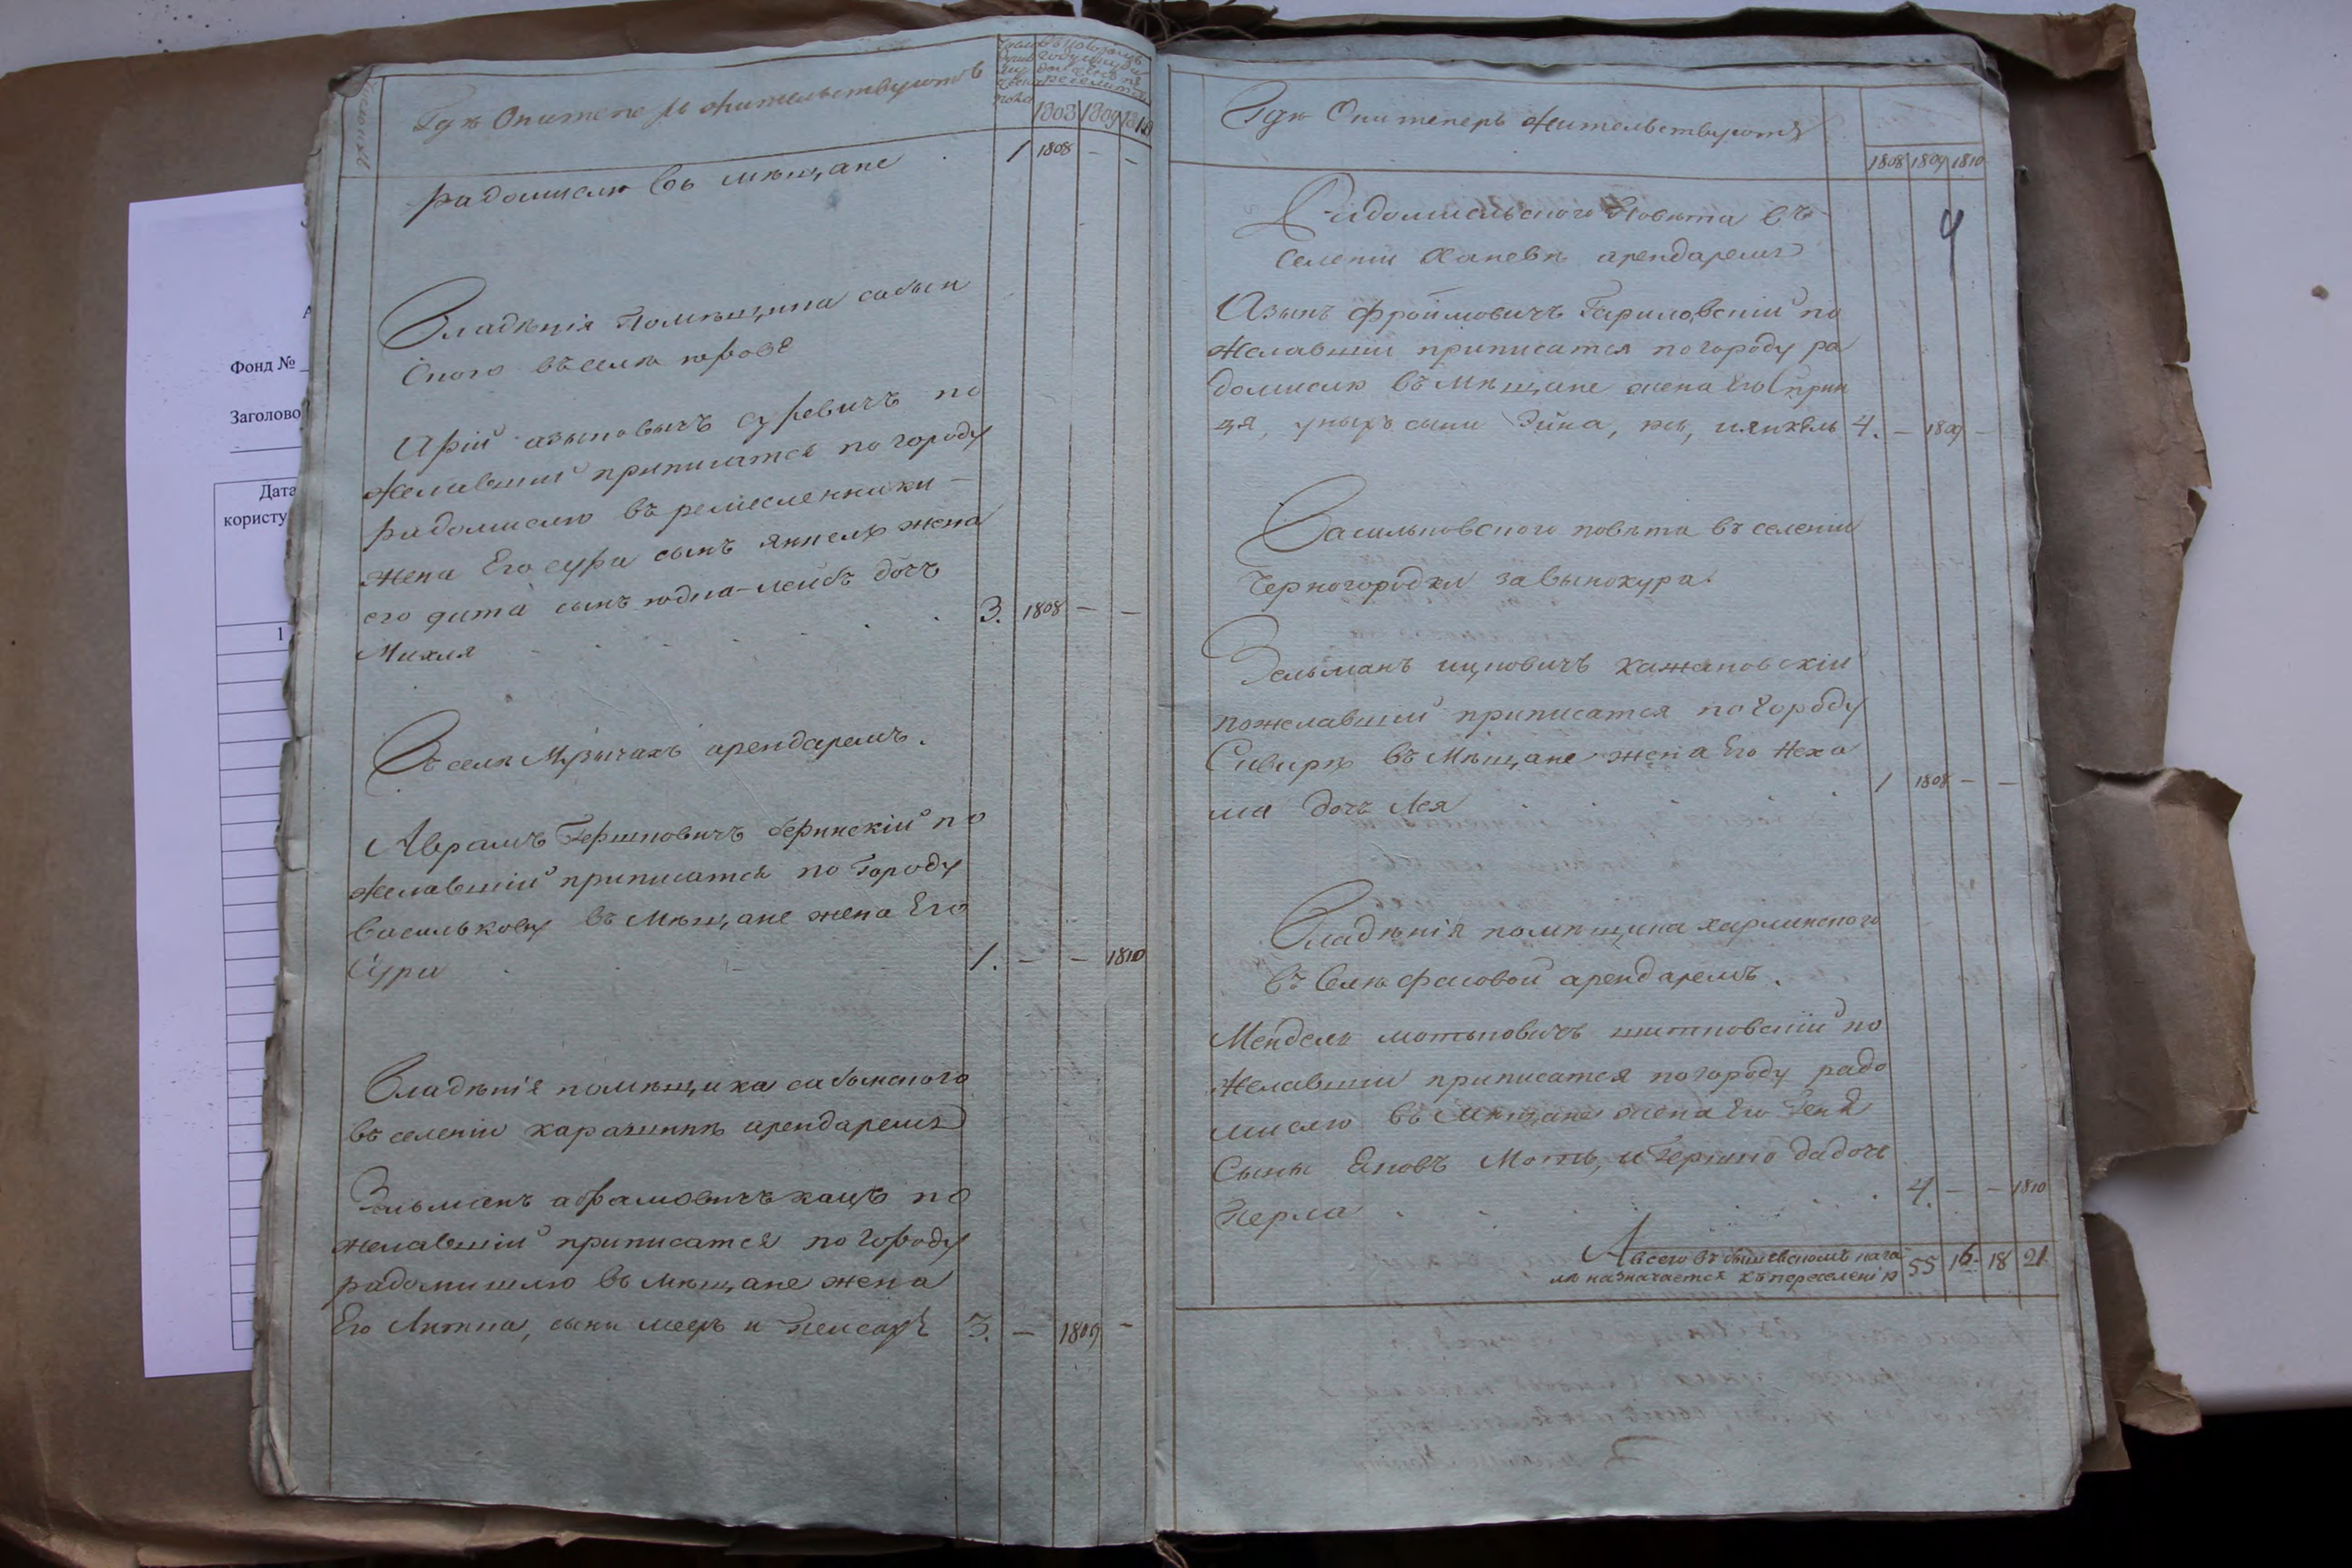 Фонд №
Заголово
Дата
користу
1
Где Они теперь жительствуютъ
1808 1809 1810
радомислю въ мѣщане 1 1808 — —
Владѣнія Помѣщика сабын
ского въ селѣ
желавшій приписатся по городу
радомислю въ ремесленники —
жена Его сура сынъ янкель жена
его сынъ юдка-лейбъ дочь
Михля 3. 1808 — —
Въ селѣ арендаремъ.
Аврамъ Гершковичъ беринскій по
желавшій приписатся по Городу
василькову въ Мѣщане жена Его
Сура 1. — — 1810
Владѣнія помѣщика сабынского
въ селеніи карашинѣ арендаремъ
Зельманъ абрамовичъ кацъ по
желавшій приписатся по городу
радомишлю въ мѣщане жена
Его сыни мееръ и Пейсахъ 3. — 1809 —
Где Они теперь жительствуютъ
1808 1809 1810
4
Радомисльского Повѣта въ
селеніи Ханевѣ арендаремъ
фроимовичъ Гариловскій по
желавшій приписатся по городу ра
домислю въ Мѣщане жена Его Сприн
ця, у ныхъ сыни 4. — 1809 —
Васильковского повѣта въ селеніи
Черногородки за вынокура.
Зельманъ ицковичъ кажановскій
пожелавшій приписатся по Городу
Сквирѣ въ Мѣщане жена Его Неха
ма дочь Лея 1 1808 — —
Владѣнія помѣщика харлинского
въ Селѣ фасовой арендаремъ.
Мендель мотьковичъ шитковскій по
желавшій приписатся по городу радо
мислю въ Мѣщане жена Его Геня
Сыни Яковъ Моть, и Гершко да дочь
Перла 4. — — 1810
А всего въ бышевскомъ
назначается къ переселенію 55 16. 18 21